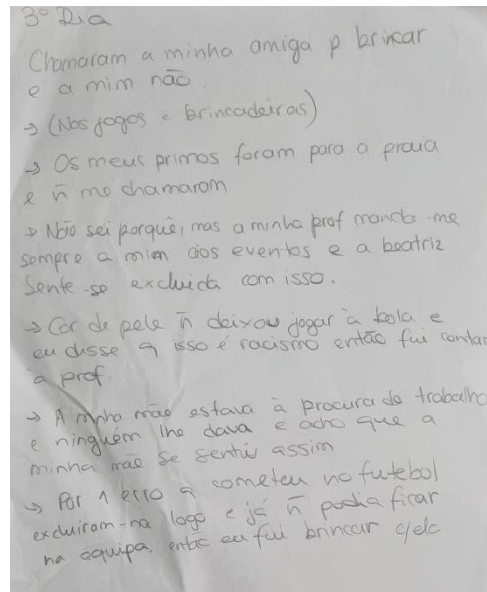 3º Dia
Chamaram a minha amiga p brincar
e a mim não
→ (Nos jogos e brincadeiras)
→ Os meus primos foram para a praia
e n̄ me chamaram
→ Não sei porquê, mas a minha prof manda-me
sempre a mim aos eventos e a beatriz
Sente-se excluida com isso.
→ Cor de pele n̄ deixou jogar à bola e
eu disse q isso é racismo então fui contar
à prof.
→ A minha mãe estava à procura de trabalho
e ninguém lhe dava e acho que a
minha mãe se sentiu assim
→ Por 1 erro q cometeu no futebol
excluiram-na logo e já n̄ podia ficar
na equipa. então eu fui brincar c/ela